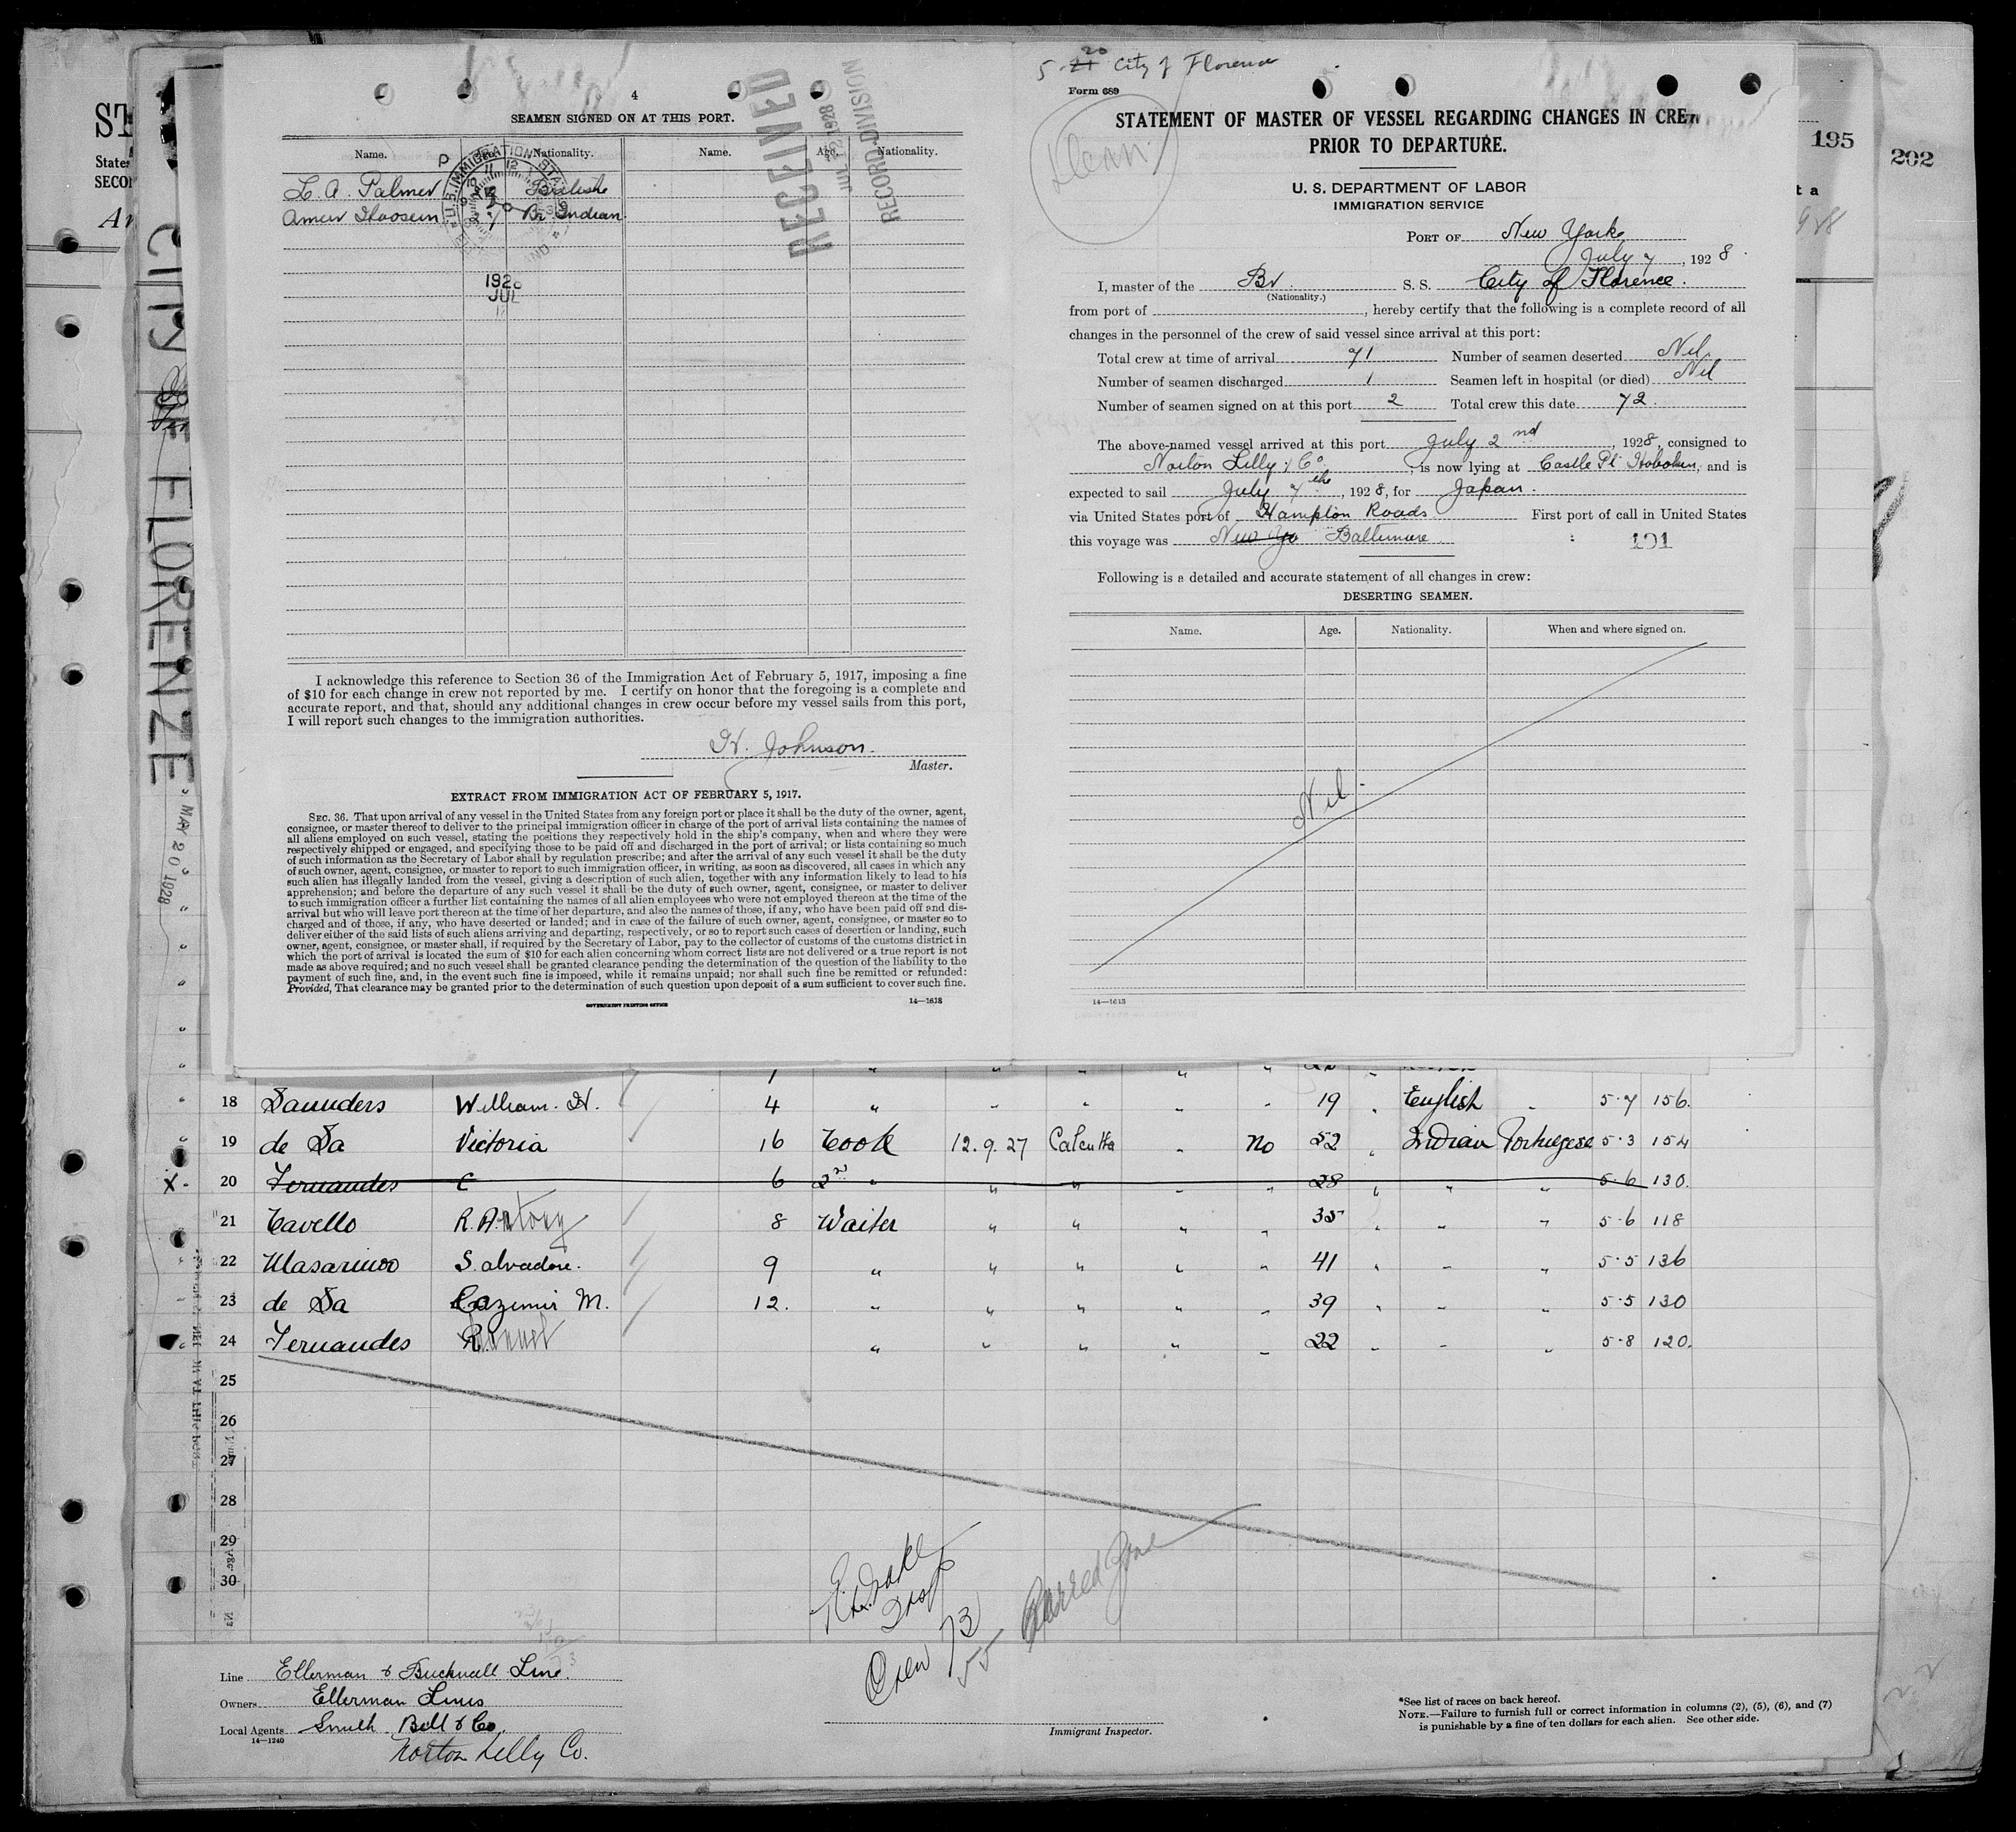 4
SEAMEN SIGNED ON AT THIS PORT.
Name. Nationality. Name. Age. Nationality.
L. A. Palmer British
Ameer Hoosein 27 Br Indian
U.S. IMMIGRATION
1928
JUL
RECEIVED
JUL 12 1928
RECORD DIVISION
I acknowledge this reference to Section 36 of the Immigration Act of February 5, 1917, imposing a fine
of $10 for each change in crew not reported by me. I certify on honor that the foregoing is a complete and
accurate report, and that, should any additional changes in crew occur before my vessel sails from this port,
I will report such changes to the immigration authorities.
H. Johnson.
Master.
EXTRACT FROM IMMIGRATION ACT OF FEBRUARY 5, 1917.
SEC. 36. That upon arrival of any vessel in the United States from any foreign port or place it shall be the duty of the owner, agent,
consignee, or master thereof to deliver to the principal immigration officer in charge of the port of arrival lists containing the names of
all aliens employed on such vessel, stating the positions they respectively hold in the ship's company, when and where they were
respectively shipped or engaged, and specifying those to be paid off and discharged in the port of arrival; or lists containing so much
of such information as the Secretary of Labor shall by regulation prescribe; and after the arrival of any such vessel it shall be the duty
of such owner, agent, consignee, or master to report to such immigration officer, in writing, as soon as discovered, all cases in which any
such alien has illegally landed from the vessel, giving a description of such alien, together with any information likely to lead to his
apprehension; and before the departure of any such vessel it shall be the duty of such owner, agent, consignee, or master to deliver
to such immigration officer a further list containing the names of all alien employees who were not employed thereon at the time of the
arrival but who will leave port thereon at the time of her departure, and also the names of those, if any, who have been paid off and dis-
charged and of those, if any, who have deserted or landed; and in case of the failure of such owner, agent, consignee, or master so to
deliver either of the said lists of such aliens arriving and departing, respectively, or so to report such cases of desertion or landing, such
owner, agent, consignee, or master shall, if required by the Secretary of Labor, pay to the collector of customs of the customs district in
which the port of arrival is located the sum of $10 for each alien concerning whom correct lists are not delivered or a true report is not
made as above required; and no such vessel shall be granted clearance pending the determination of the question of the liability to the
payment of such fine, and, in the event such fine is imposed, while it remains unpaid; nor shall such fine be remitted or refunded:
Provided, That clearance may be granted prior to the determination of such question upon deposit of a sum sufficient to cover such fine.
GOVERNMENT PRINTING OFFICE 14—1613
5 21 20 City of Florence
Form 689
STATEMENT OF MASTER OF VESSEL REGARDING CHANGES IN CREW
PRIOR TO DEPARTURE.
U. S. DEPARTMENT OF LABOR
IMMIGRATION SERVICE
PORT OF New York
July 7, 1928.
I, master of the Br. S. S. City of Florence.
(Nationality.)
from port of , hereby certify that the following is a complete record of all
changes in the personnel of the crew of said vessel since arrival at this port:
Total crew at time of arrival 71 Number of seamen deserted Nil.
Number of seamen discharged 1 Seamen left in hospital (or died) Nil
Number of seamen signed on at this port 2 Total crew this date 72.
The above-named vessel arrived at this port July 2nd, 1928, consigned to
Norton Lilly & Co, is now lying at Castle Pt Hoboken, and is
expected to sail July 7the, 1928, for Japan.
via United States port of Hampton Roads First port of call in United States
this voyage was New Yo Baltimore
191
Following is a detailed and accurate statement of all changes in crew:
DESERTING SEAMEN.
Name. Age. Nationality. When and where signed on.
Nil.
14—1613
195
202
CITY OF FLORENZE
MAY 20 1928
18 Saunders William. H. 4 " " " " " 19 " English " 5·7 156.
19 de Sa Victoria 16 Cook 12.9.27 Calcutta " no 52 " Indian Portuguese 5·3 154
X 20 Fernandes C 6 2nd " " " " " 28 " " " 5·6 130.
21 Cavello R. Antony 8 Waiter " " " " 35 " " " 5·6 118
22 Masarinoo Salvadore. 9 " " " " " 41 " " " 5·5 136
23 de Sa Cazimir M. 12. " " " " " 39 " " " 5·5 130
24 Fernandes R. " " " " " 22 " " " 5·8 120.
25
26
27
28
29
30
Crew 73
55 Barred Zone
Line Ellerman & Bucknall Line.
Owners Ellerman Lines
Local Agents Smith Bell & Co.
14—1240
Norton Lilly Co.
Immigrant Inspector.
*See list of races on back hereof.
NOTE.—Failure to furnish full or correct information in columns (2), (5), (6), and (7)
is punishable by a fine of ten dollars for each alien. See other side.